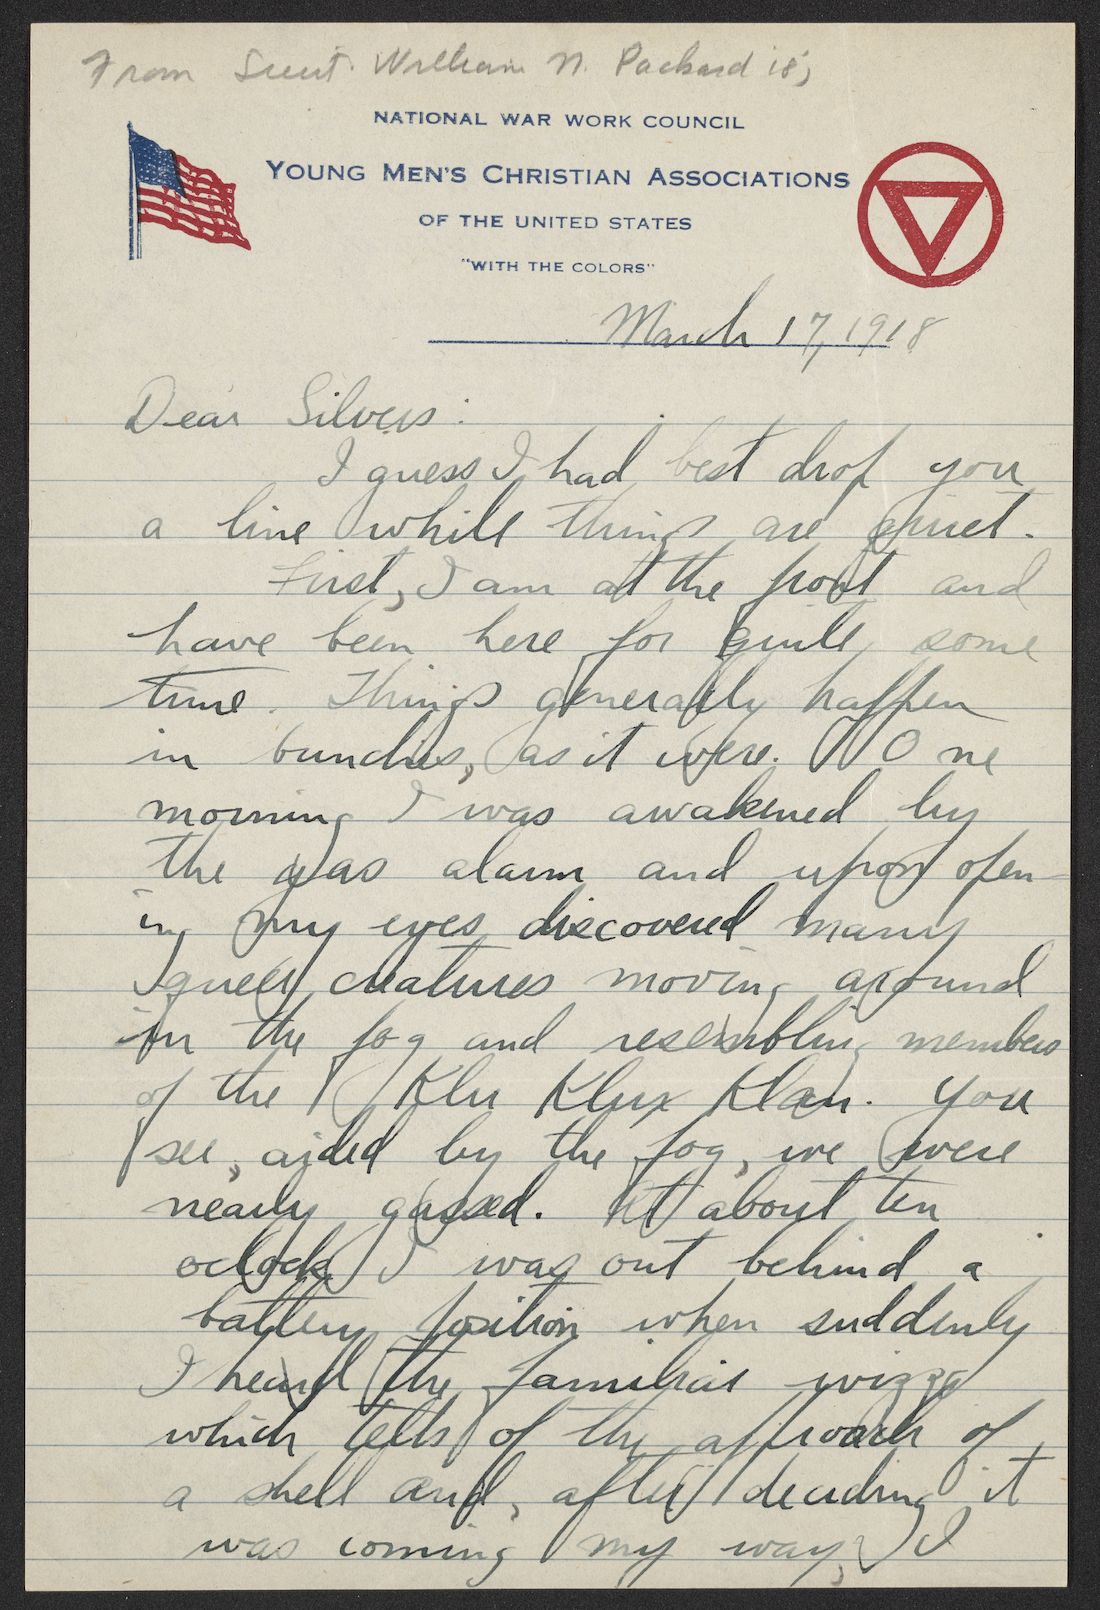 From Lieut. William N. Packard 18,
NATIONAL WAR WORK COUNCIL
YOUNG MEN'S CHRISTIAN ASSOCIATIONS
OF THE UNITED STATES
"WITH THE COLORS"
March 17, 1918
Dear Silvers:
I guess I had best drop you
a line while things are quiet.
First, I am at the front and
have been here for quite some
time. Things generally happen
in bunches, as it were. One
morning I was awakened by
the gas alarm and upon open-
ing my eyes discovered many
queer creatures moving around
in the fog and resembling members
of the Klu Klux Klan. You
see, aided by the fog, we were
nearly gassed. At about ten
oclock I was out behind a
battery position when suddenly
I heard the familiar wizzz
which tells of the aproach of
a shell and, after deciding it
was coming my way, I